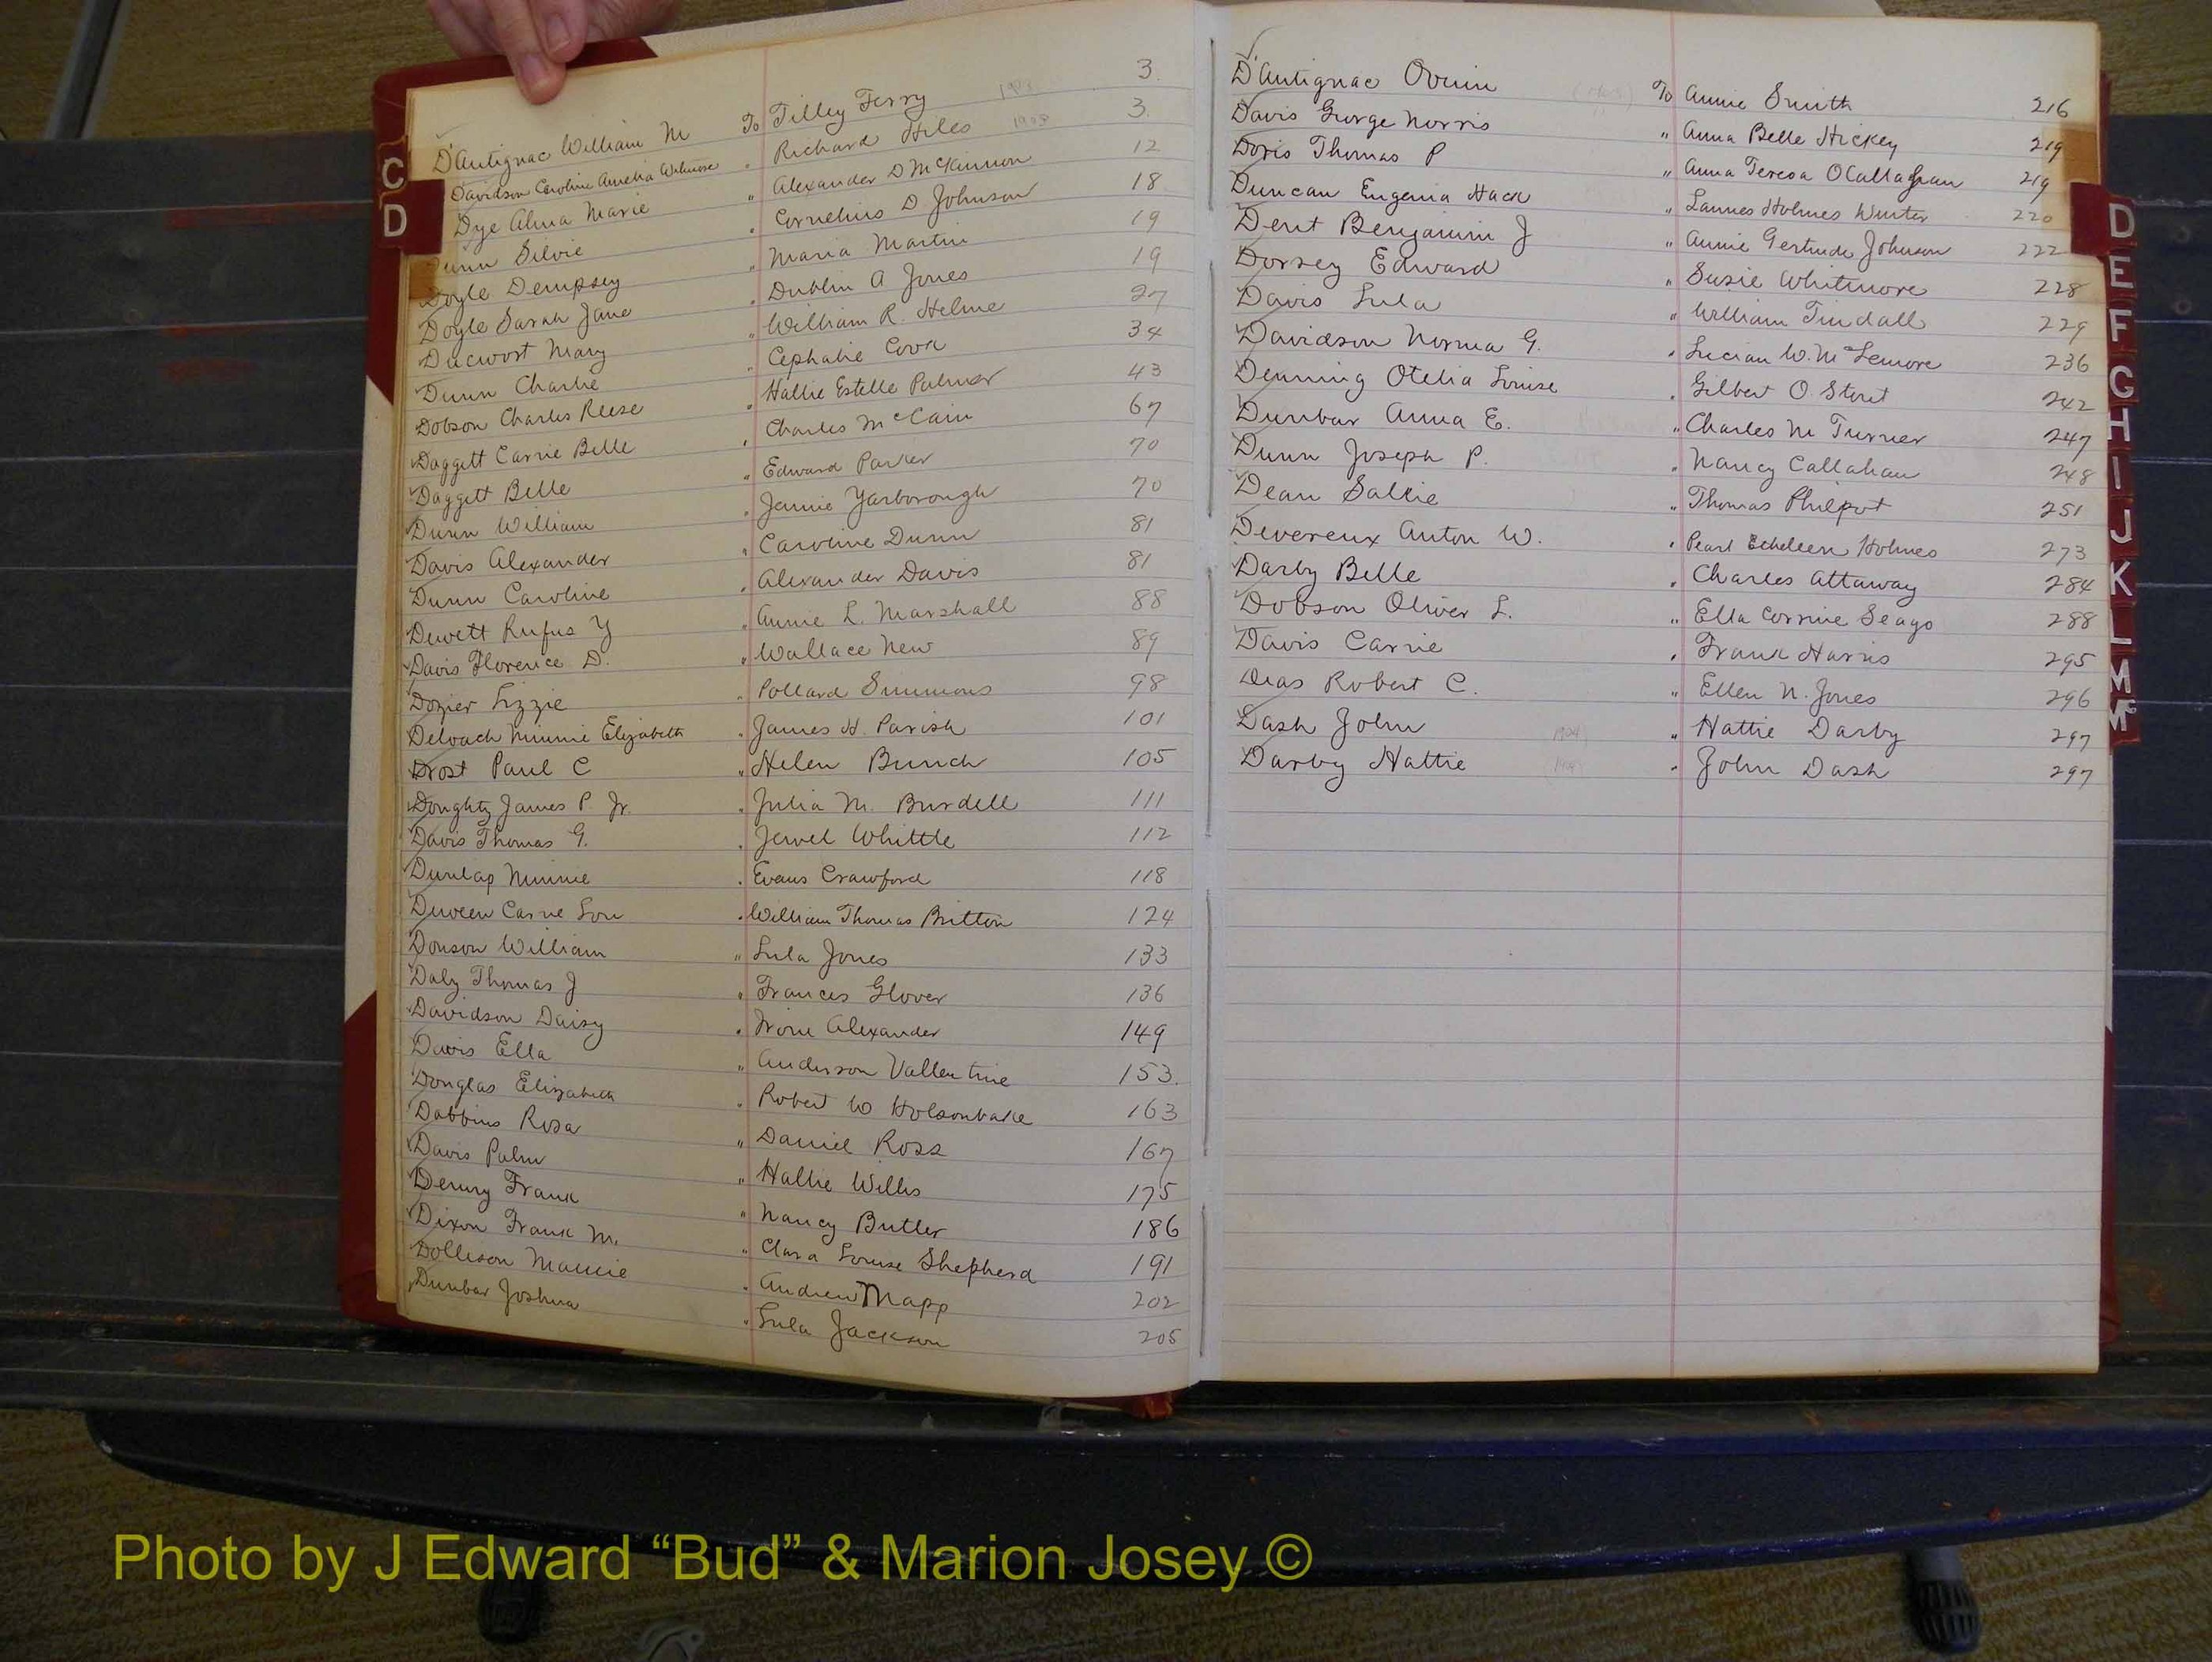 D'Antignac William M To Tilley Ferry 3.
Davidson Caroline Amelia Wilmore " Richard Hiles 3.
Dye Alma Marie " Alexander D McKinnon 12
Dunn Silvie " Cornelius D Johnson 18
Doyle Dempsey " Maria Martin 19
Doyle Sarah Jane " Dublin A Jones 19
Ducwort Mary " William R. Helme 27
Dunn Charlie " Cephalie Cova 34
Dobson Charles Reese " Hallie Estelle Palmer 43
Daggett Carrie Belle " Charles McCain 67
Daggett Belle " Edward Parker 70
Dunn William " Jamie Yarborough 70
Davis Alexander " Caroline Dunn 81
Dunn Caroline " Alexander Davis 81
Dewett Rufus Y " Annie L. Marshall 88
Davis Florence D. " Wallace New 89
Dozier Lizzie " Pollard Simmons 98
Deloach Minnie Elizabeth " James H. Parish 101
Drost Paul C " Helen Bunch 105
Doughty James P. Jr. " Julia M. Burdell 111
Davis Thomas G. " Jewel Whittle 112
Dunlap Minnie " Evans Crawford 118
Duveen Carrie Lou " William Thomas Britton 124
Donson William " Lula Jones 133
Daly Thomas J " Frances Glover 136
Davidson Daisy " Irvine Alexander 149
Davis Ella " Anderson Vallentine 153.
Douglas Elizabeth " Robert W Holsonbake 163
Dobbins Rosa " Daniel Ross 167
Davis Palm " Hallie Willis 175
Denny Frank " Nancy Butler 186
Dixon Frank M. " Clara Louise Shepherd 191
Dollison Mamie " Andrew Mapp 202
Dunbar Joshua " Lula Jackson 205
D'Antignac Ovuin To Annie Smith 216
Davis George Norris " Anna Belle Hickey 219
Doris Thomas P " Anna Teresa OCallaghan 219
Duncan Eugenia Hack " Lannes Holmes Winter 220
Dent Benjamin J " Annie Gertrude Johnson 222
Dorsey Edward " Susie Whitmore 228
Davis Lula " William Tindall 229
Davidson Norma G. " Lucian W. McLemore 236
Denning Otelia Louise " Gilbert O. Stout 242
Dunbar Anna E. " Charles M Turner 247
Dunn Joseph P. " Nancy Callahan 248
Dean Sallie " Thomas Philpot 251
Devereux Anton W. " Pearl Echeleen Holmes 273
Darby Belle " Charles Attaway 284
Dobson Oliver L. " Ella Corrine Seago 288
Davis Carrie " Frank Harris 295
Dias Robert C. " Ellen N. Jones 296
Dash John " Hattie Darby 297
Darby Hattie " John Dash 297
C
D
D
E
F
G
H
I
J
K
L
M
Mc
Photo by J Edward “Bud” & Marion Josey ©